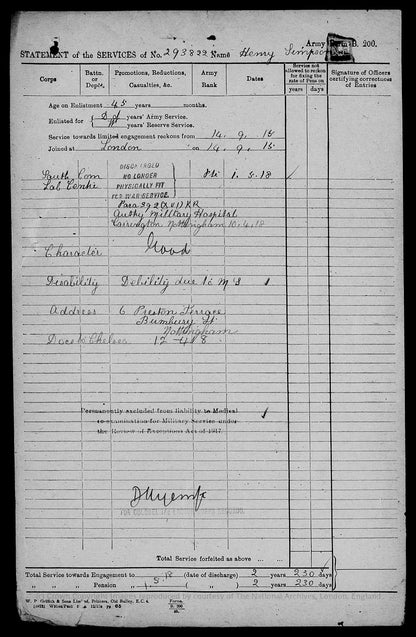 Army Form B. 200.
STATEMENT of the SERVICES of No. 293822 Name Henry Simpson
Corps
Battn. or Depôt.
Promotions, Reductions, Casualties, &c.
Army Rank
Dates
Service not allowed to reckon for fixing the rate of Pension
years days
Signature of Officers certifying correctness of Entries
Age on Enlistment 45 years months.
Enlisted for years' Army Service.
years' Reserve Service.
Service towards limited engagement reckons from 14. 9. 15
Joined at London on 14. 9. 15
South Com
Lab Centre
DISCHARGED
NO LONGER
PHYSICALLY FIT
FOR WAR SERVICE
Pte 1. 5. 18
Para 392 (XVI) KR
Military Hospital
Nottingham 10.4.18
Character Good
Disability Debility due to
Address 6 Preston Terrace
Bumbury St
Nottingham
Docs to Chelsea 12-4-18
Permanently excluded from liability to Medical
re-examination for Military Service under
the Review of Exceptions Act of 1917.
Total Service forfeited as above
Total Service towards Engagement to (date of discharge) 2 years 230 days
Pension 2 years 230 days
W. P. Griffith & Sons Limited, Printers, Old Bailey, E.C. 4.
Forms
B. 200